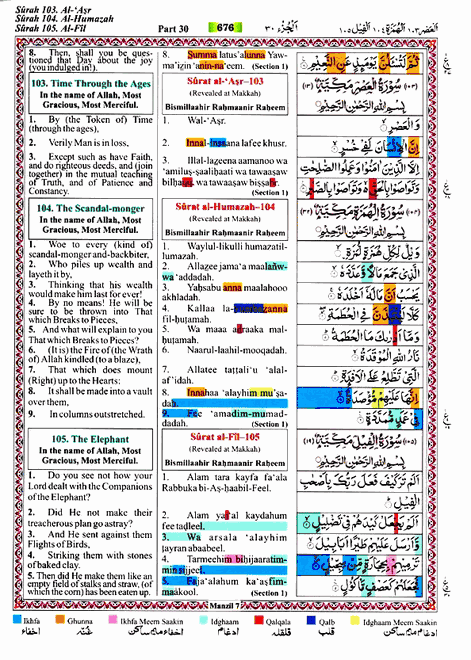 Sûrah 103. Al-‘Aṣr
Sûrah 104. Al-Humazah
Sûrah 105. Al-Fîl
Part 30
676
الجزء ٣٠
العصر ١٠٣ الهمزة ١٠٤ الفيل ١٠٥
8. Then, shall you be ques-
tioned that Day about the joy
(you indulged in!).
103. Time Through the Ages
In the name of Allah, Most
Gracious, Most Merciful.
1. By (the Token of) Time
(through the ages),
2. Verily Man is in loss,
3. Except such as have Faith,
and do righteous deeds, and (join
together) in the mutual teaching
of Truth, and of Patience and
Constancy.
104. The Scandal-monger
In the name of Allah, Most
Gracious, Most Merciful.
1. Woe to every (kind of)
scandal-monger and-backbiter,
2. Who piles up wealth and
layeth it by,
3. Thinking that his wealth
would make him last for ever!
4. By no means! He will be
sure to be thrown into That
which Breaks to Pieces,
5. And what will explain to you
That which Breaks to Pieces?
6. (It is) the Fire of (the Wrath
of) Allah kindled (to a blaze),
7. That which does mount
(Right) up to the Hearts:
8. It shall be made into a vault
over them,
9. In columns outstretched.
105. The Elephant
In the name of Allah, Most
Gracious, Most Merciful.
1. Do you see not how your
Lord dealt with the Companions
of the Elephant?
2. Did He not make their
treacherous plan go astray?
3. And He sent against them
Flights of Birds,
4. Striking them with stones
of baked clay.
5. Then did He make them like an
empty field of stalks and straw, (of
which the corn) has been eaten up.
8. Summa latus’alunna Yaw-
ma’izin ‘anin-na‘eem. (Section 1)
Sûrat al-‘Aṣr–103
(Revealed at Makkah)
Bismillaahir Raḥmaanir Raḥeem
1. Wal-‘Aṣr.
2. Innal-insaana lafee khusr.
3. Illal-lazeena aamanoo wa
‘amiluṣ-ṣaaliḥaati wa tawaaṣaw
bilḥaqq, wa tawaaṣaw biṣṣabr.
(Section 1)
Sûrat al-Humazah–104
(Revealed at Makkah)
Bismillaahir Raḥmaanir Raḥeem
1. Waylul-likulli humazatil-
lumazah.
2. Allazee jama‘a maalañw-
wa ‘addadah.
3. Yaḥsabu anna maalahooo
akhladah.
4. Kallaa la-
fil-ḥuṭamah.
5. Wa maaa adraaka mal-
ḥuṭamah.
6. Naarul-laahil-mooqadah.
7. Allatee taṭṭali‘u ‘alal-
af’idah.
8. Innahaa ‘alayhim mu’ṣa-
dah.
9. Fee ‘amadim-mumad-
dadah. (Section 1)
Sûrat al-Fîl–105
(Revealed at Makkah)
Bismillaahir Raḥmaanir Raḥeem
1. Alam tara kayfa fa‘ala
Rabbuka bi-Aṣ-ḥaabil-Feel.
2. Alam yaj‘al kaydahum
fee taḍleel.
3. Wa arsala ‘alayhim
ṭayran abaabeel.
4. Tarmeehim biḥijaaratim-
min sijjeel.
5. Faja‘alahum ka‘aṣfim-
maakool. (Section 1)
ثُمَّ لَتُسْئَلُنَّ يَوْمَئِذٍ عَنِ النَّعِيْمِ ۝٨
(١٠٣) سُوْرَةُ الْعَصْرِ مَكِّيَّةٌ (١٣)
بِسْمِ اللهِ الرَّحْمٰنِ الرَّحِيْمِ
وَالْعَصْرِ ۝١
اِنَّ الْاِنْسَانَ لَفِيْ خُسْرٍ ۝٢
اِلَّا الَّذِيْنَ اٰمَنُوْا وَعَمِلُوا الصّٰلِحٰتِ
وَتَوَاصَوْا بِالْحَقِّ وَتَوَاصَوْا بِالصَّبْرِ ۝٣
(١٠٤) سُوْرَةُ الْهُمَزَةِ مَكِّيَّةٌ (٣٢)
بِسْمِ اللهِ الرَّحْمٰنِ الرَّحِيْمِ
وَيْلٌ لِّكُلِّ هُمَزَةٍ لُّمَزَةِ ۝١
الَّذِيْ جَمَعَ مَالًا وَّعَدَّدَهٗ ۝٢
يَحْسَبُ اَنَّ مَالَهٗٓ اَخْلَدَهٗ ۝٣
كَلَّا لَيُنْۢبَذَنَّ فِي الْحُطَمَةِ ۝٤
وَمَآ اَدْرٰىكَ مَا الْحُطَمَةُ ۝٥
نَارُ اللهِ الْمُوْقَدَةُ ۝٦
الَّتِيْ تَطَّلِعُ عَلَى الْاَفْـِٕدَةِ ۝٧
اِنَّهَا عَلَيْهِمْ مُّؤْصَدَةٌ ۝٨
فِيْ عَمَدٍ مُّمَدَّدَةٍ ۝٩
(١٠٥) سُوْرَةُ الْفِيْلِ مَكِّيَّةٌ (١٩)
بِسْمِ اللهِ الرَّحْمٰنِ الرَّحِيْمِ
اَلَمْ تَرَ كَيْفَ فَعَلَ رَبُّكَ بِاَصْحٰبِ
الْفِيْلِ ۝١
اَلَمْ يَجْعَلْ كَيْدَهُمْ فِيْ تَضْلِيْلٍ ۝٢
وَّاَرْسَلَ عَلَيْهِمْ طَيْرًا اَبَابِيْلَ ۝٣
تَرْمِيْهِمْ بِحِجَارَةٍ مِّنْ سِجِّيْلٍ ۝٤
فَجَعَلَهُمْ كَعَصْفٍ مَّاْكُوْلٍ ۝٥
Manzil 7
Ikhfa
Ghunna
Ikhfa Meem Saakin
Idghaam
Qalqala
Qalb
Idghaam Meem Saakin
اخفاء
غنّه
اخفاء ميم ساكن
ادغام
قلقله
قلب
ادغام ميم ساكن